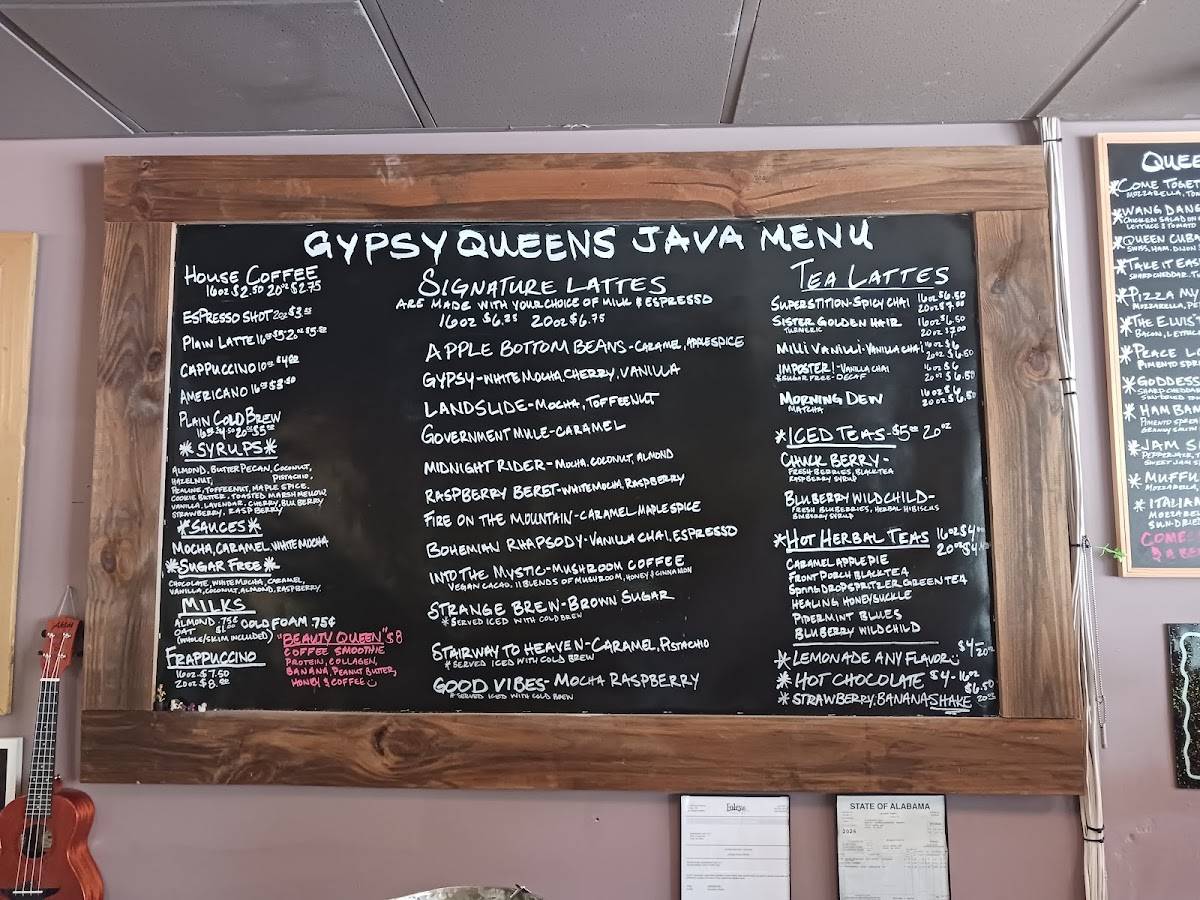 GYPSY QUEENS JAVA MENU
HOUSE COFFEE
16oz $2.50 20oz $2.75
ESPRESSO SHOT 2oz
PLAIN LATTE
CAPPUCCINO 10oz
AMERICANO
PLAIN COLD BREW
*SYRUPS*
ALMOND, BUTTER PECAN, COCONUT,
HAZELNUT, PISTACHIO,
PRALINE, TOFFEENUT, MAPLE SPICE.
COOKIE BUTTER, TOASTED MARSHMELLOW,
VANILLA, LAVENDAR, CHERRY, BLUBERRY
STRAWBERRY, RASPBERRY
*SAUCES*
MOCHA, CARAMEL, WHITE MOCHA
*SUGAR FREE*
CHOCOLATE, WHITE MOCHA, CARAMEL,
VANILLA, COCONUT, ALMOND, RASPBERRY
MILKS
ALMOND .75¢ COLD FOAM .75¢
OAT
(WHOLE/SKIM INCLUDED)
FRAPPUCCINO
16oz-$7.50
20oz $8.00
"BEAUTY QUEEN" $8
COFFEE SMOOTHIE
PROTEIN, COLLAGEN,
BANANA, PEANUT BUTTER,
HONEY & COFFEE
SIGNATURE LATTES
ARE MADE WITH YOUR CHOICE OF MILK & ESPRESSO
16oz $6.25 20oz $6.75
APPLE BOTTOM BEANS-CARAMEL, APPLE SPICE
GYPSY-WHITE MOCHA, CHERRY, VANILLA
LANDSLIDE-MOCHA, TOFFEENUT
GOVERNMENT MULE-CARAMEL
MIDNIGHT RIDER-MOCHA, COCONUT, ALMOND
RASPBERRY BERET-WHITE MOCHA, RASPBERRY
FIRE ON THE MOUNTAIN-CARAMEL MAPLE SPICE
BOHEMIAN RHAPSODY-VANILLA CHAI, ESPRESSO
INTO THE MYSTIC-MUSHROOM COFFEE
VEGAN CACAO, 11 BLENDS OF MUSHROOM, HONEY & CINNAMON
STRANGE BREW-BROWN SUGAR
*SERVED ICED WITH COLD BREW
STAIRWAY TO HEAVEN-CARAMEL, PISTACHIO
*SERVED ICED WITH COLD BREW
GOOD VIBES-MOCHA RASPBERRY
*SERVED ICED WITH COLD BREW
TEA LATTES
SUPERSTITION-SPICY CHAI 16oz $6.50
20oz $7.00
SISTER GOLDEN HAIR 16oz $6.50
TURMERIC 20oz $7.00
MILLI VANILLI-VANILLA CHAI 16oz $6
20oz $6.50
IMPOSTER!-VANILLA CHAI 16oz $6
*SUGAR FREE-DECAF 20oz $6.50
MORNING DEW 16oz $6
MATCHA 20oz $6.50
*ICED TEAS-$5 20oz
CHUCK BERRY-
FRESH BERRIES, BLACK TEA
RASPBERRY SYRUP
BLUBERRY WILD CHILD-
FRESH BLUBERRIES, HERBAL HIBISCUS
BLUBERRY SYRUP
*HOT HERBAL TEAS 16oz $4
20oz
CARAMEL APPLE PIE
FRONT PORCH BLACK TEA
SPRING DROP SPRITZER GREEN TEA
HEALING HONEYSUCKLE
PIPERMINT BLUES
BLUBERRY WILDCHILD
*LEMONADE ANY FLAVOR $4 20oz
*HOT CHOCOLATE $4-16oz
*STRAWBERRY, BANANA SHAKE $6.50 20oz
QUEE
*COME TOGET
MOZZARELLA, TO
*WANG DANG
CHICKEN SALAD ON
LETTUCE & TOMATO
*QUEEN CUBA
SWISS, HAM, DIJON
*TAKE IT EAS
SHARP CHEDDAR, T
*PIZZA MY
MOZZARELLA, PE
*THE ELVIS
BACON, LETTUC
*PEACE LO
PIMENTO SPRE
*GODDESS
SHARP CHEDDAR
SUN-DRIED TOM
*HAM BAN
PIMENTO SPREA
GRANNY SMITH
*JAM S
PEPPERJACK, T
SWEET JAM
*MUFFU
MOZZARELLA,
*ITALIAN
MOZZAREL
SUN-DRIE
COME
STATE OF ALABAMA